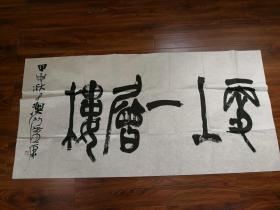 更上一層樓
甲申秋